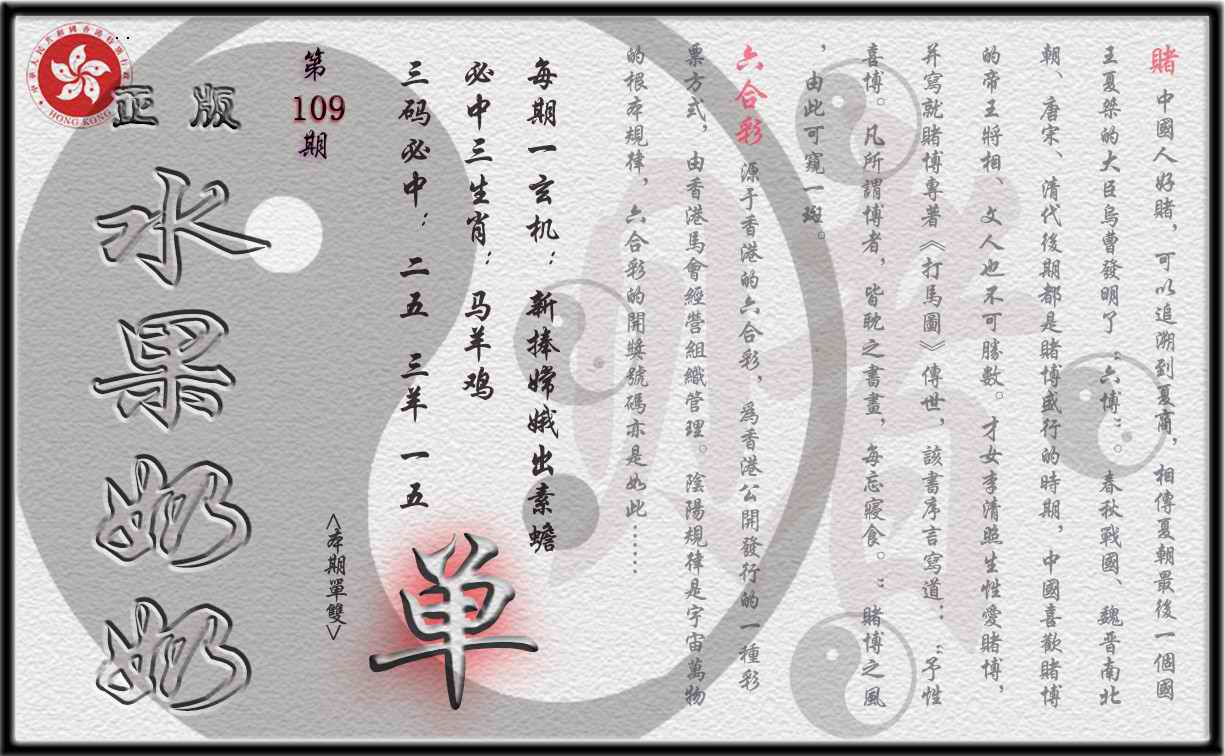 賭 中國人好賭，可以追溯到夏商，相傳夏朝最後一個國
王夏桀的大臣烏曹發明了“六博”。春秋戰國、魏晋南北
朝、唐宋、清代後期都是賭博盛行的時期，中國喜歡賭博
的帝王將相、文人也不可勝數。才女李清照生性愛賭博，
并寫就賭博專著《打馬圖》傳世，該書序言寫道：“予性
喜博。凡所謂博者，皆耽之書畫，每忘寢食。”賭博之風
，由此可窺一斑。
六合彩 源于香港的六合彩，爲香港公開發行的一種彩
票方式，由香港馬會經營組織管理。陰陽規律是宇宙萬物
的根本規律，六合彩的開獎號碼亦是如此……
每期一玄机：新捧嫦娥出素蟾
必中三生肖：马羊鸡
三码必中：二五 三羊 一五
单
<本期單雙>
第
109
期
正版
水果奶奶
中華人民共和國香港特別行政區
HONG KONG